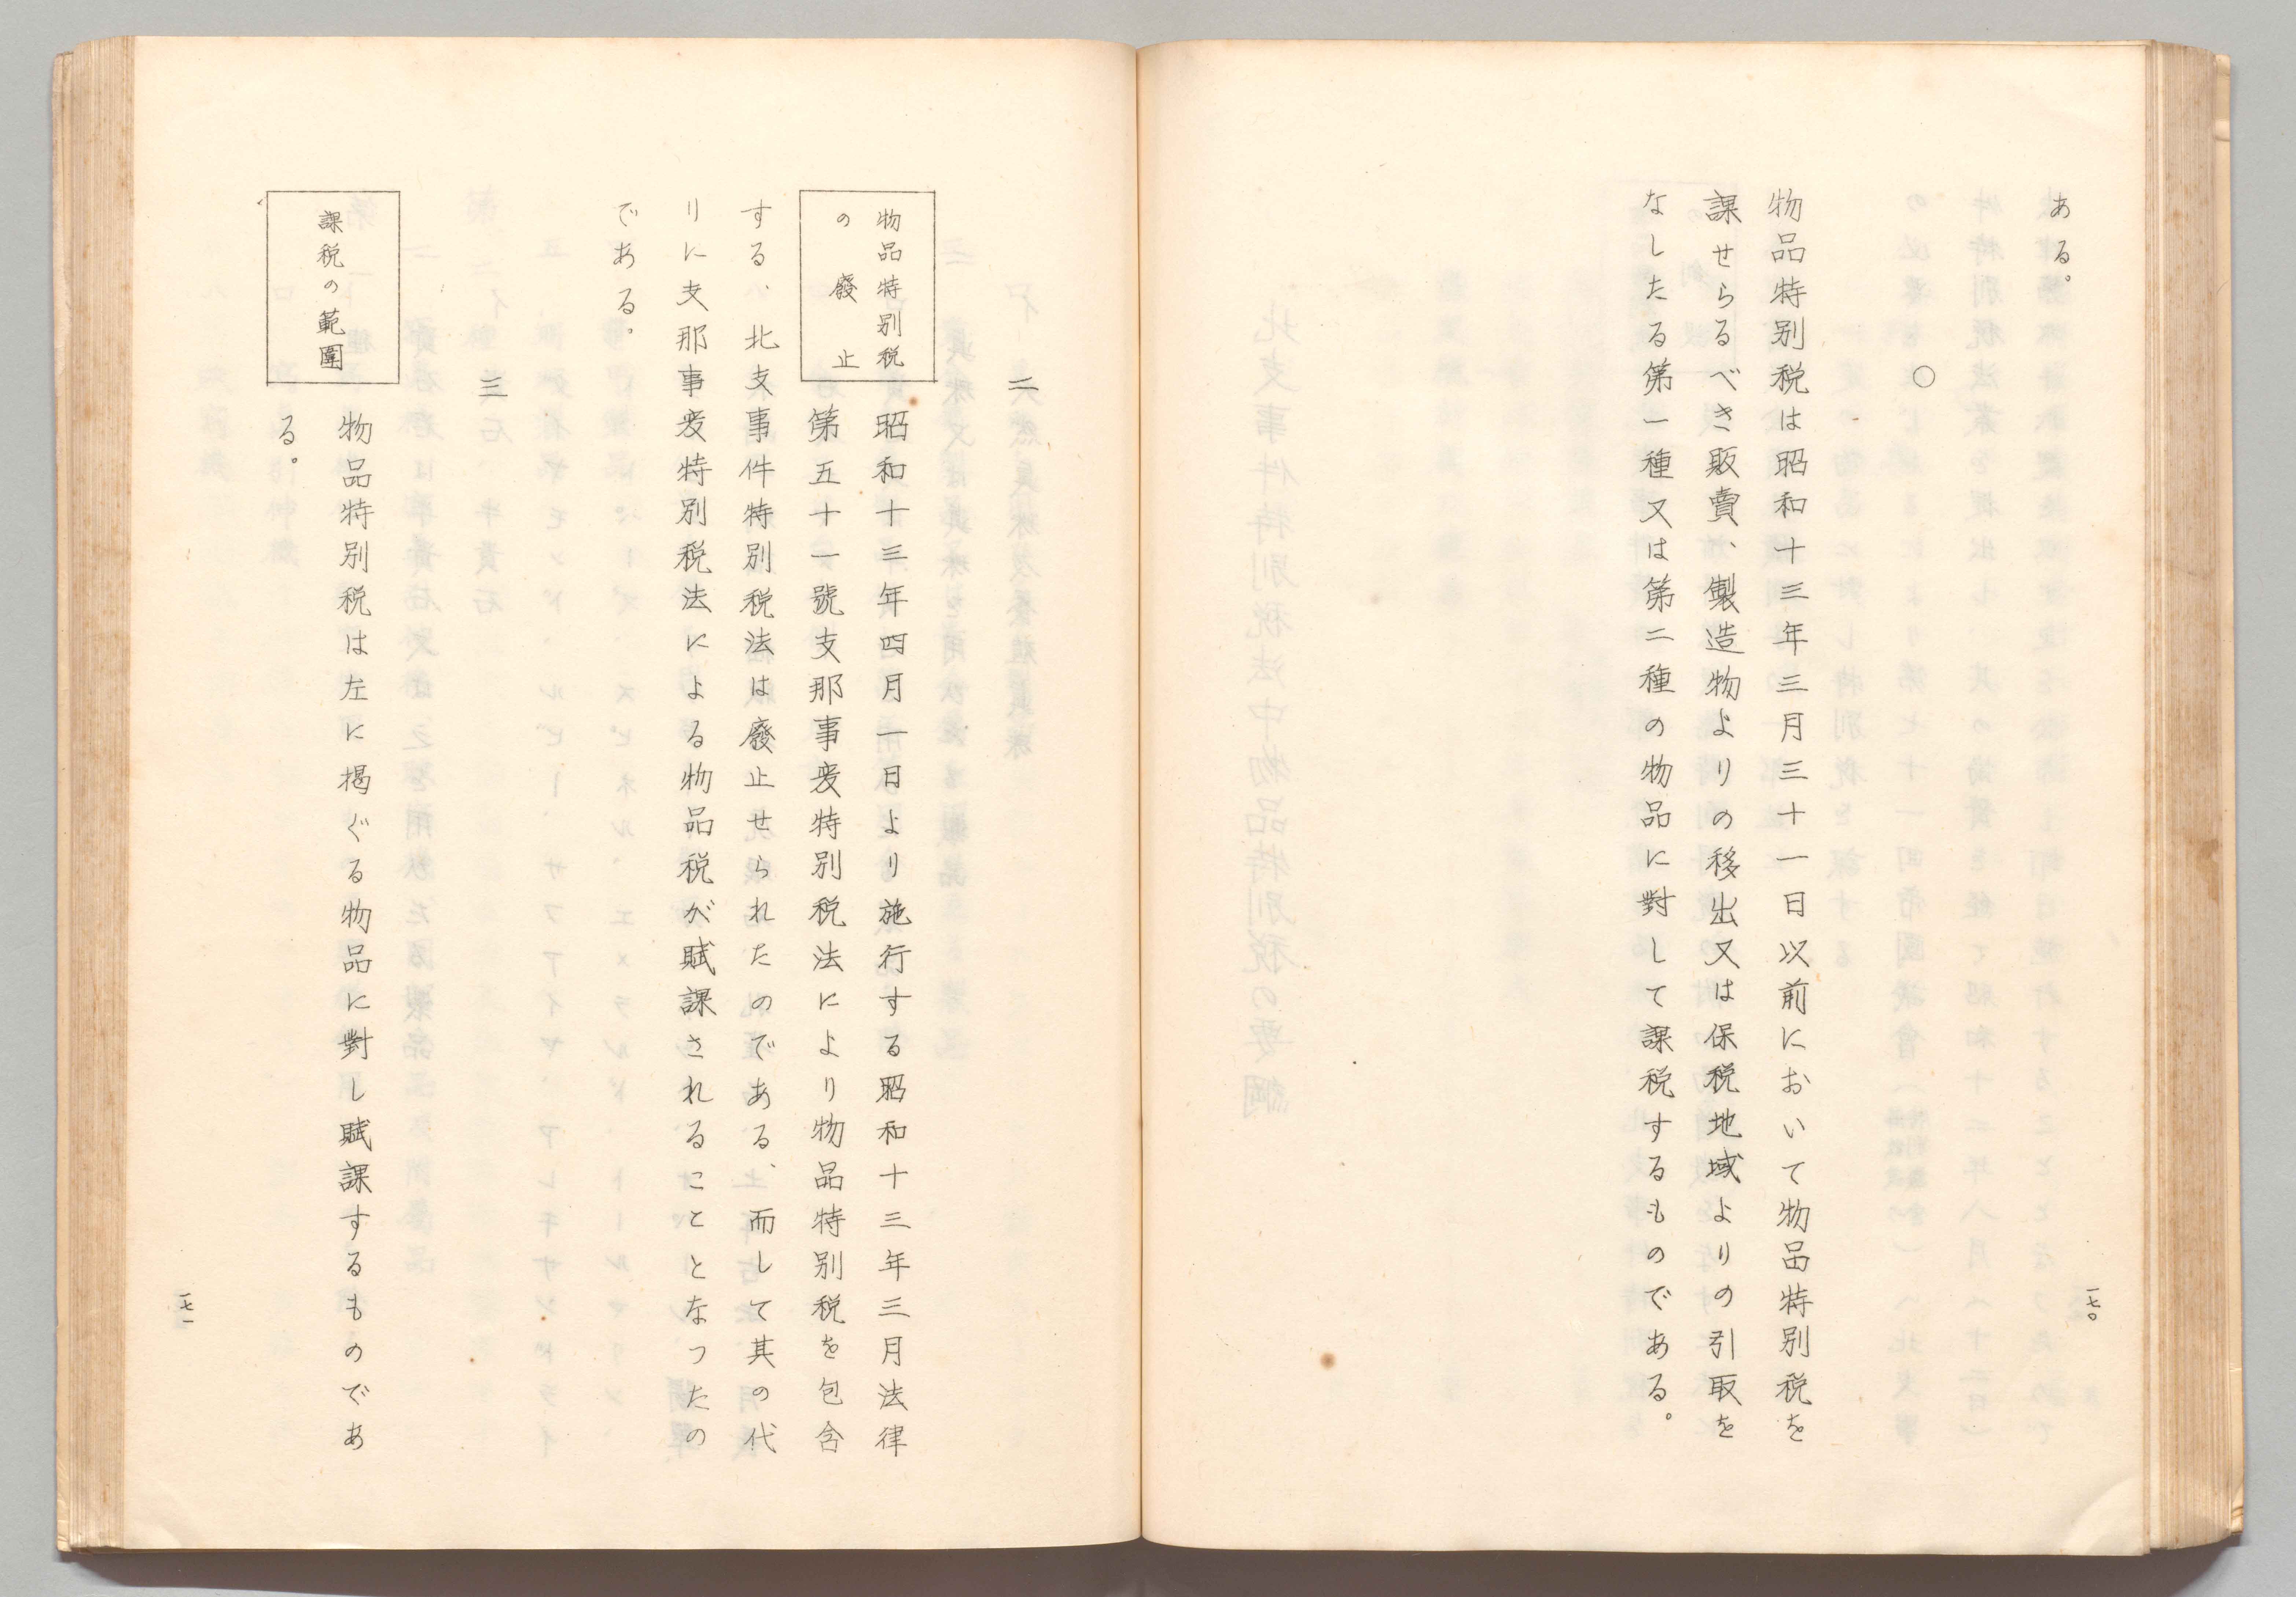 ある。
○
物品特別税は昭和十三年三月三十一日以前において物品特別税を
課せらるべき販賣、製造物よりの移出又は保税地域よりの引取を
なしたる第一種又は第二種の物品に對して課税するものである。
一七〇
二
物品特別税
の廢止
昭和十三年四月一日より施行する昭和十三年三月法律
第五十一號支那事変特別税法により物品特別税を包含
する、北支事件特別税法は廢止せられたのである、而して其の代
りに支那事変特別税法による物品税が賦課されることとなつたの
である。
三
課税の範圍
物品特別税は左に揭ぐる物品に對し賦課するものであ
る。
一七一